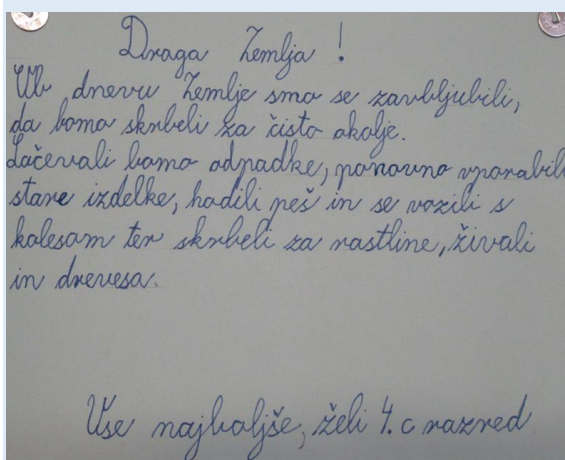 Draga Zemlja!
Ob dnevu Zemlje smo se zaobljubili,
da bomo skrbeli za čisto okolje.
Ločevali bomo odpadke, ponovno uporabili
stare izdelke, hodili peš in se vozili s
kolesom ter skrbeli za rastline, živali
in drevesa.
Vse najboljše, želi 4. c razred